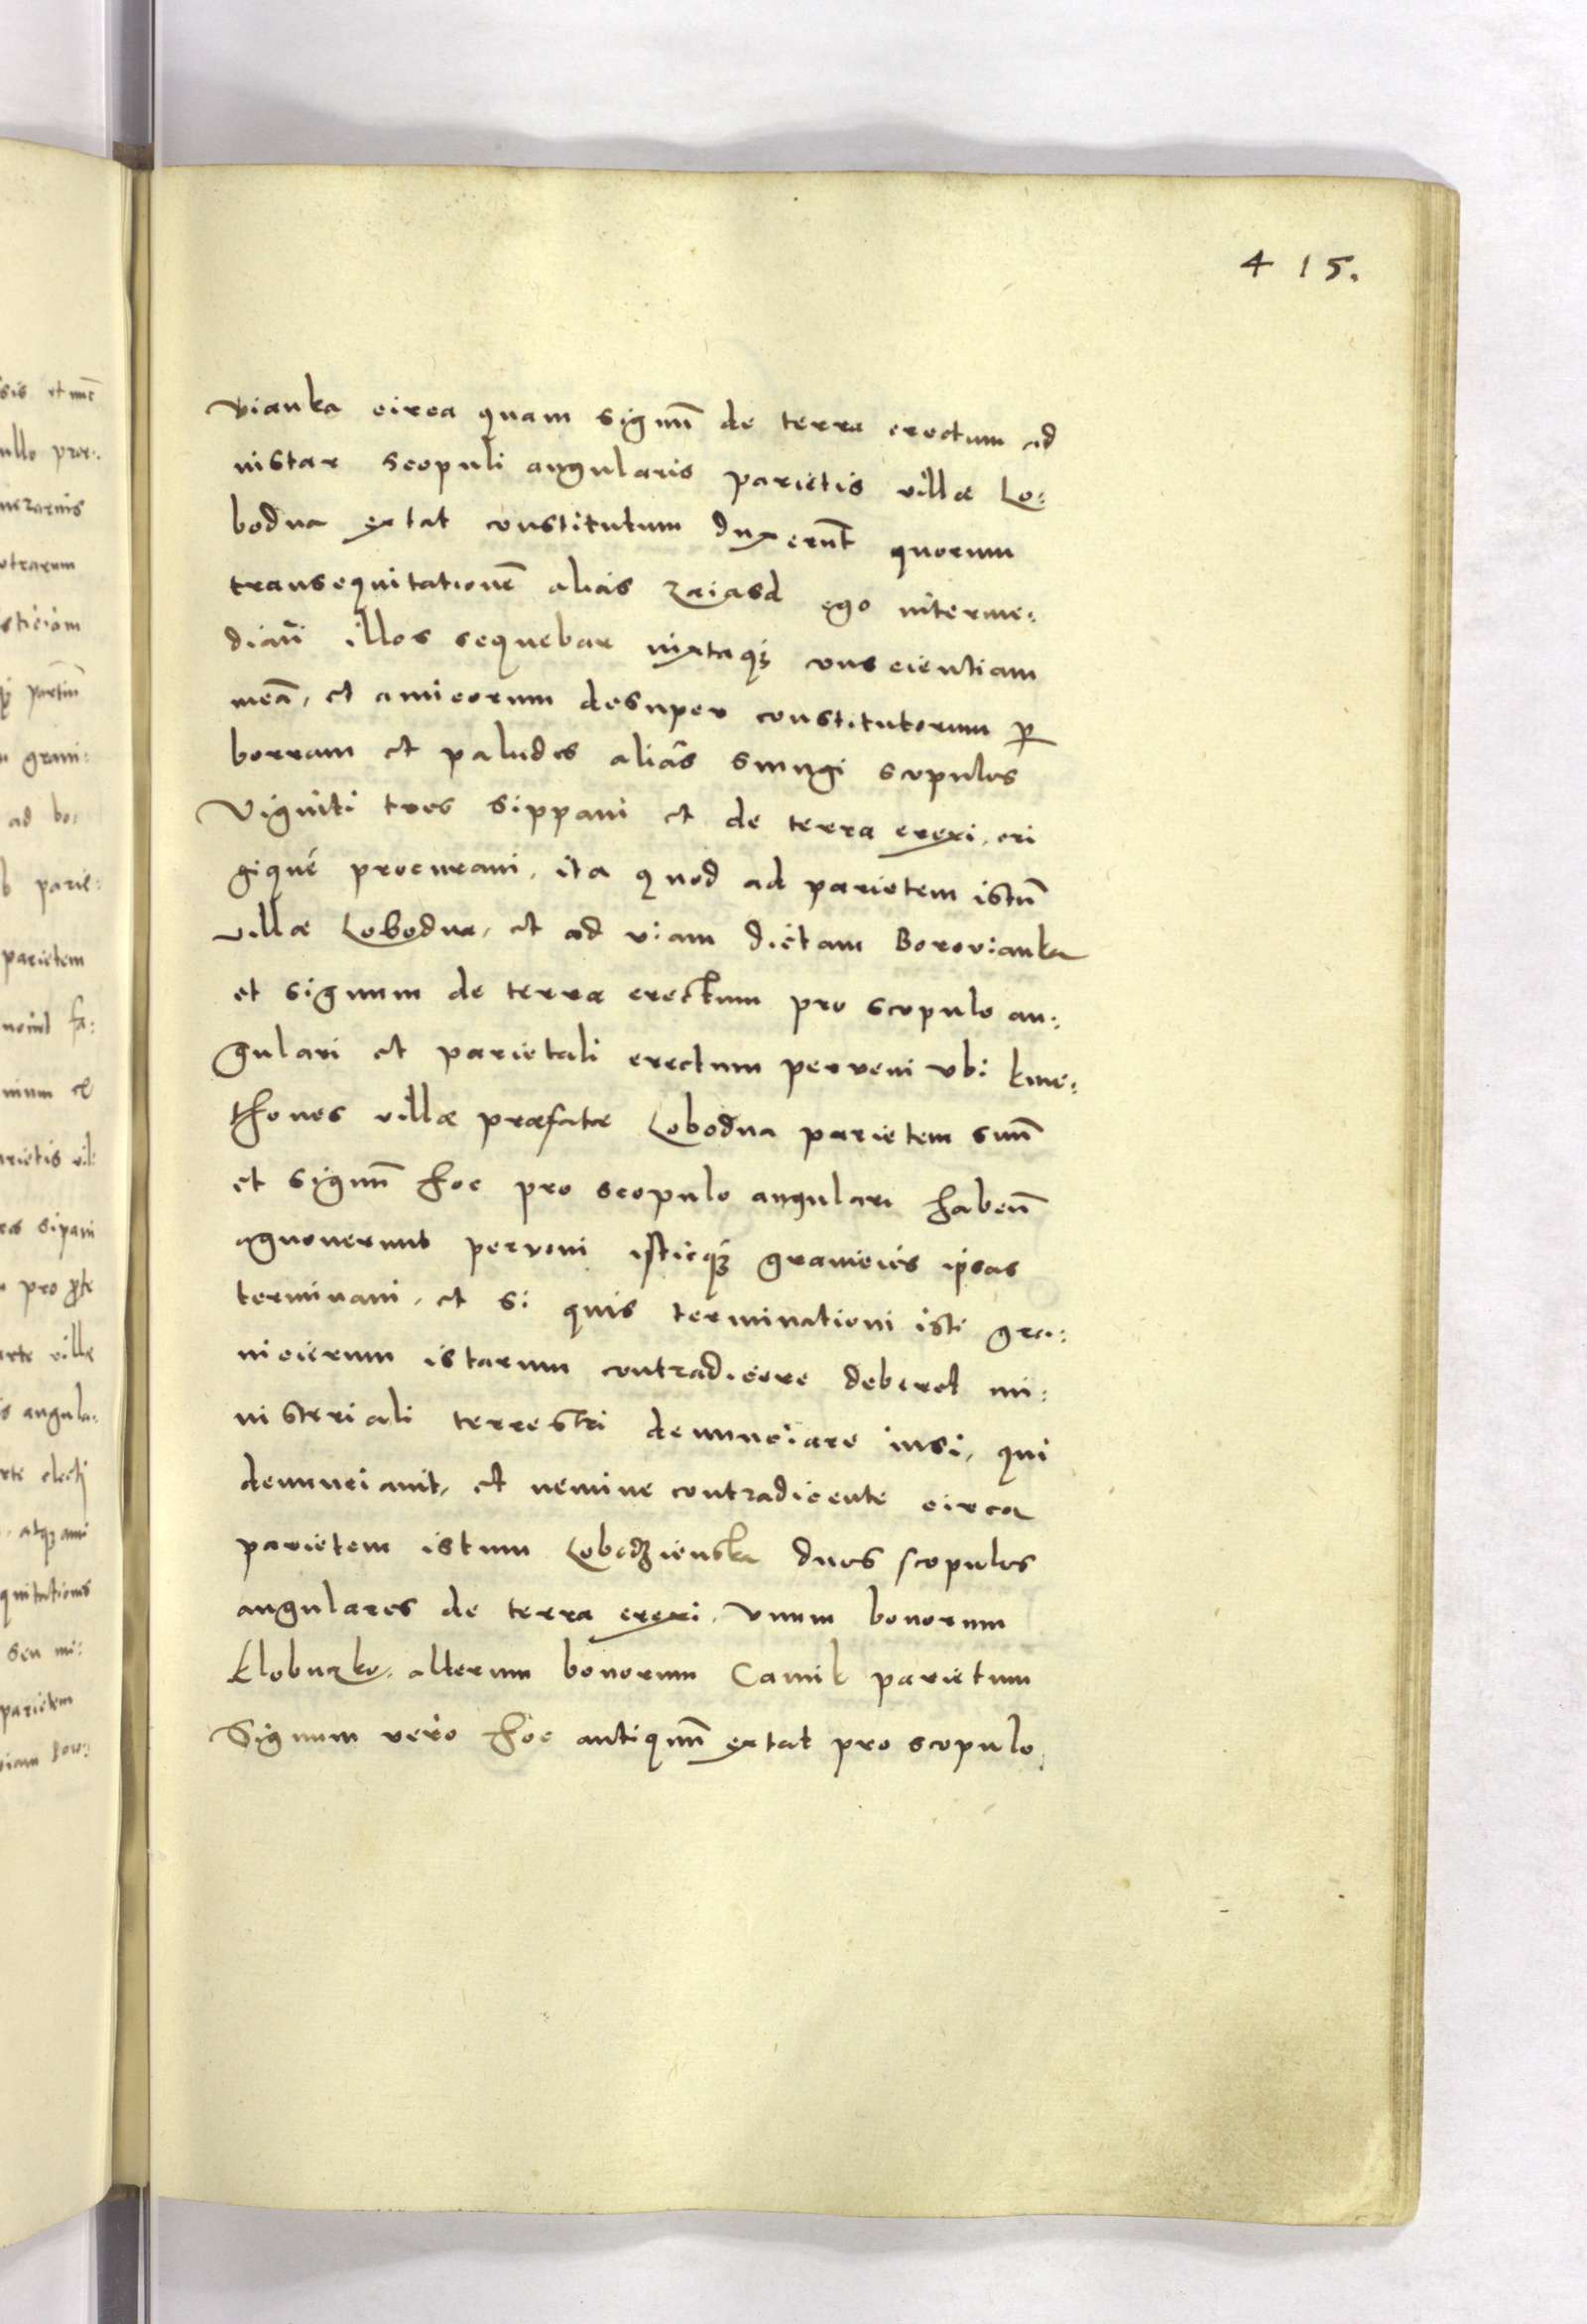 415.
vianka circa quam signũ de terra erectum ad
instar scopuli angularis parietis villæ Lo:
bodna extat constitutum duxerũt quorum
transequitationẽ alias Zaiasd ego interme:
diaũ illos sequebar iuxtaqȝ conscientiam
meã, et amicorum desuper constitutorum ꝑ
borram et paludes aliàs smugi scopulos
Viginti tres sippaui et de terra erexi, eri
giquè procuraui, ita quod ad parietem istũ
villæ Lobodna, et ad viam dictam Borovianka
et signum de terra erectum pro scopulo an:
gulari et parietali erectum perveni vbi kme:
thones villæ præfatæ Lobodna parietem suũ
et signũ hoc pro scopulo angulari haberi
agnouerunt perveni isticqȝ granicies ipsas
terminaui, et si quis terminationi isti gra:
nicierum istarum contradicere deberet mi:
nisteriali terrestri denunciare iussi, qui
denunciauit, et nemine contradicente circa
parietem istum Lobodzienska duos scopulos
angulares de terra erexi, Vnum bonorum
Klobuczko, alterum bonorum Camik parietum
Signum verò hoc antiquũ extat pro scopulo